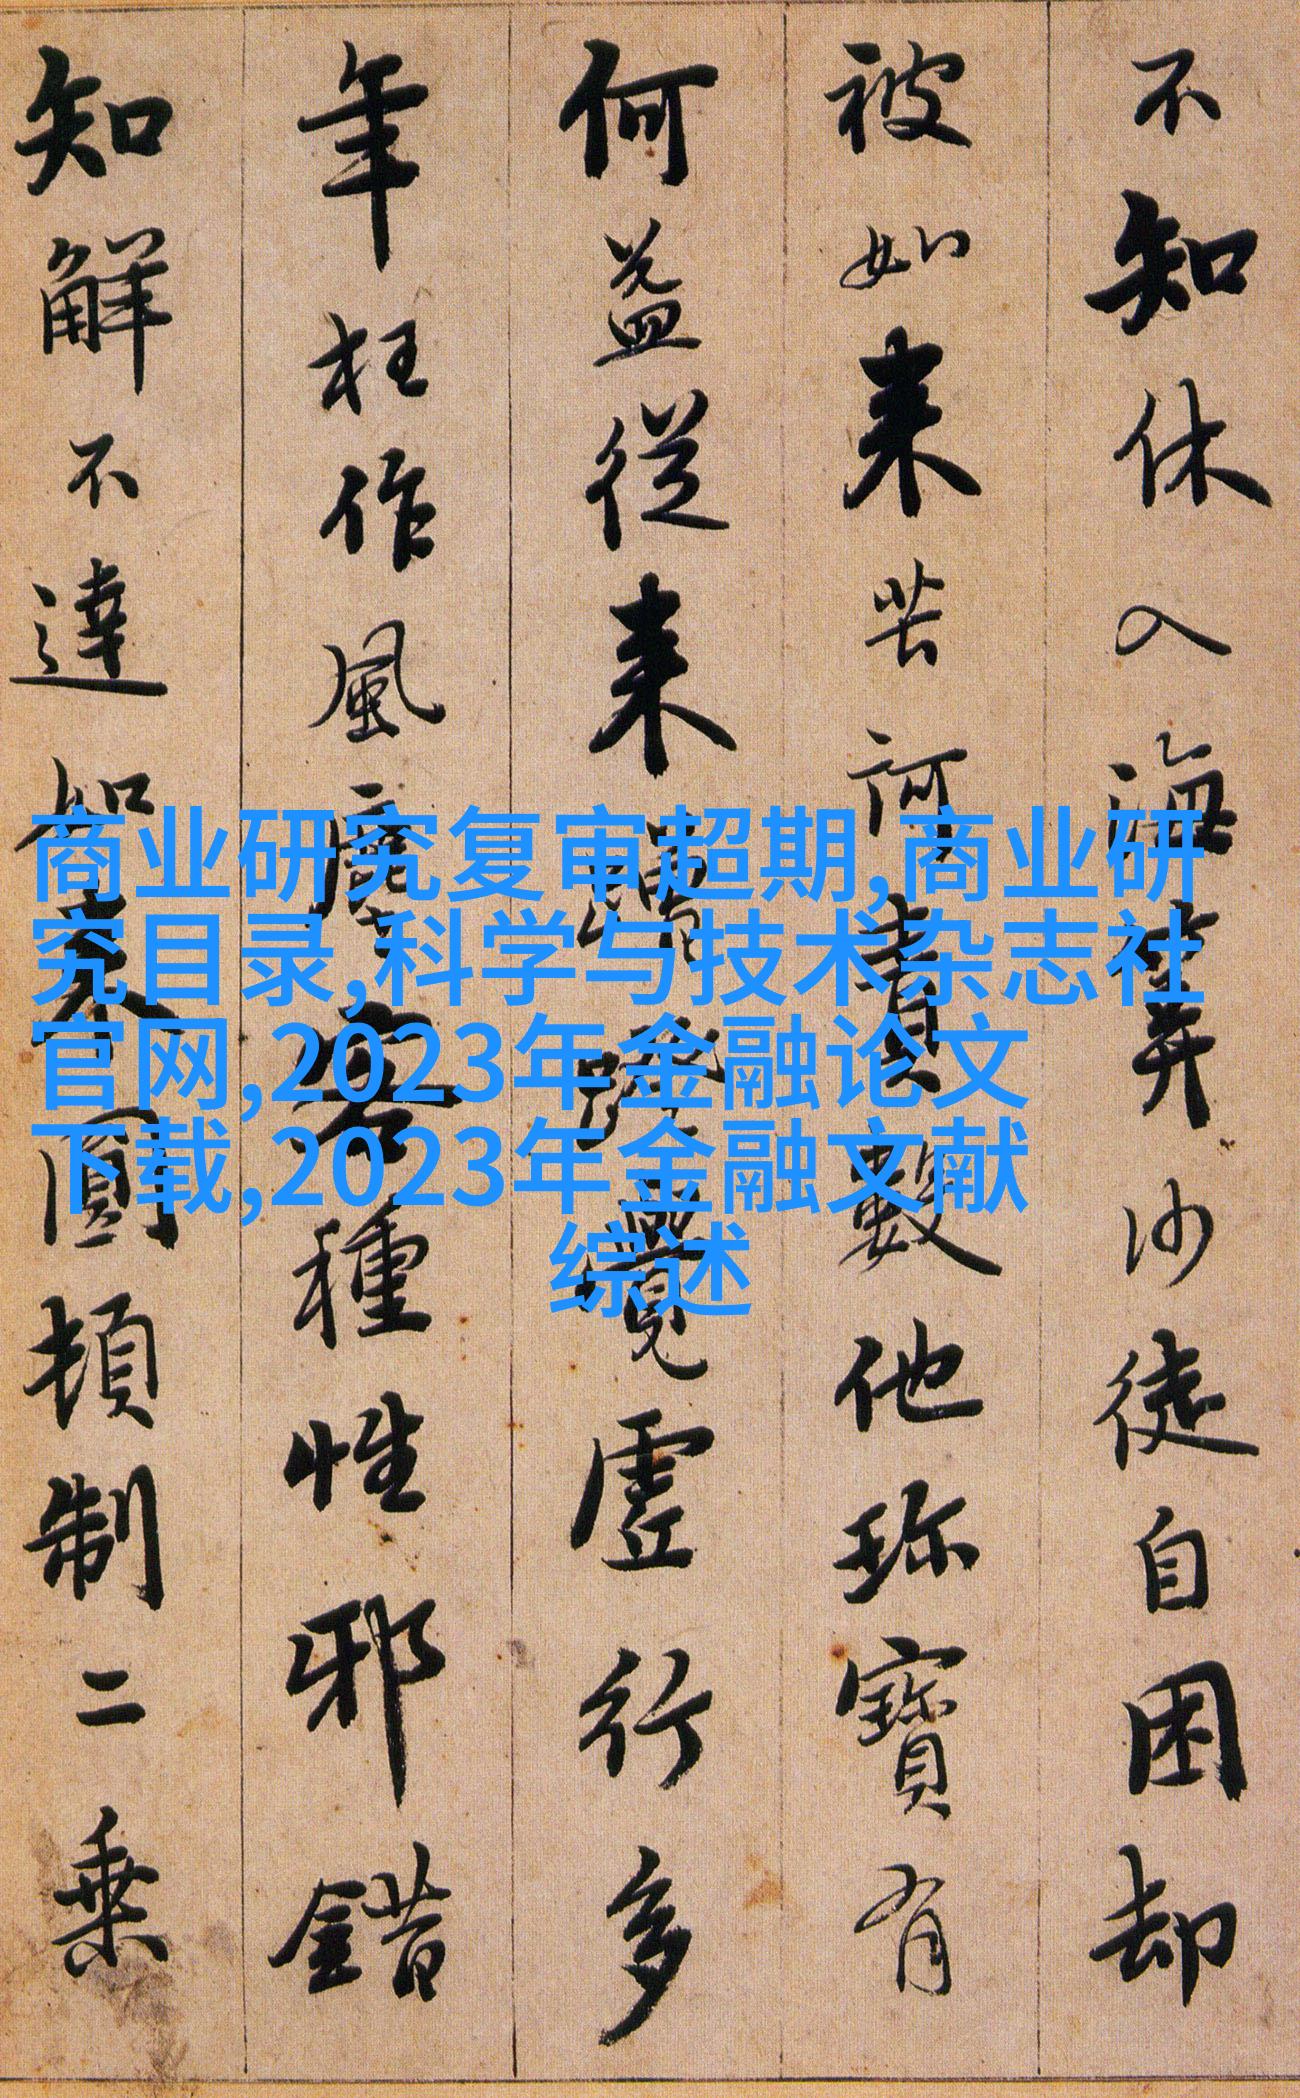 不知休入海筭沙徒自困却
被如来苦訶責數他珎寶有
何益從来蹭蹬覺虛行多
年枉作風塵客種性邪錯
知解不達如来圓頓制二乗
商业研究复审超期,商业研
究目录,科学与技术杂志社
官网,2023年金融论文
下载,2023年金融文献
综述